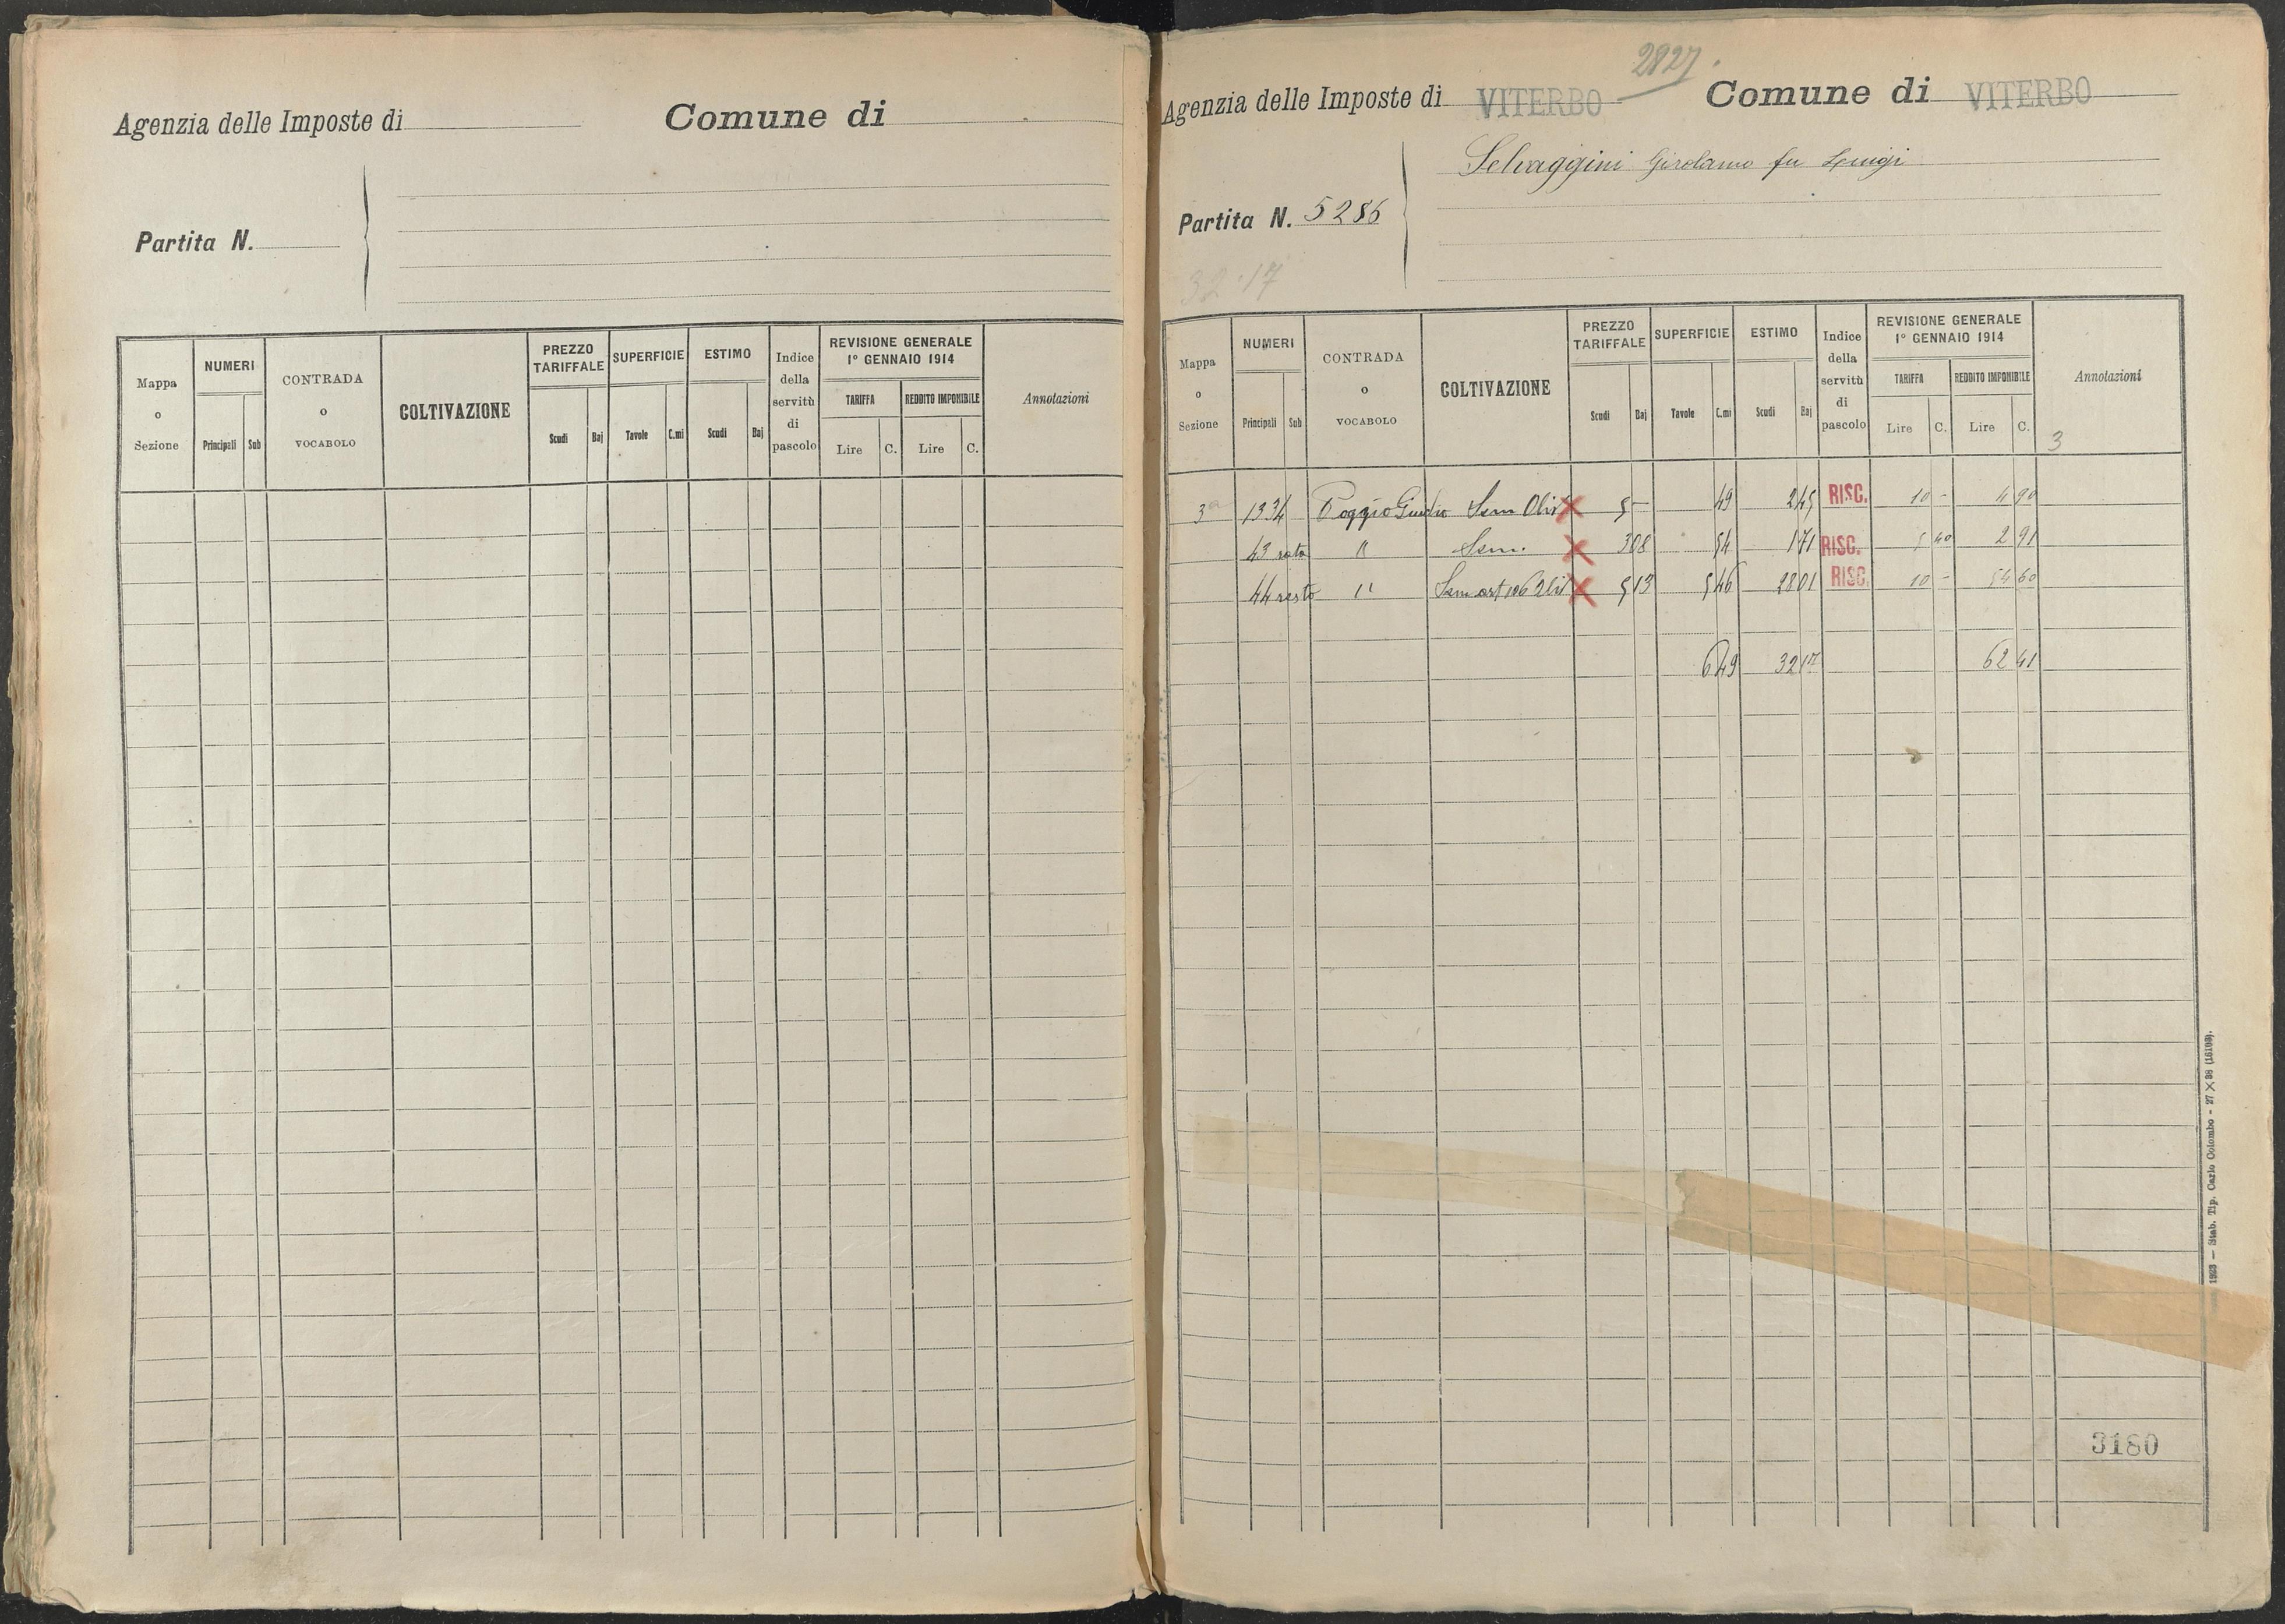 Agenzia delle Imposte di
Comune di
Partita N.
Mappa o Sezione
NUMERI
Principali Sub
CONTRADA o VOCABOLO
COLTIVAZIONE
PREZZO TARIFFALE
Scudi Baj
SUPERFICIE
Tavole C.mi
ESTIMO
Scudi Baj
Indice della servitù di pascolo
REVISIONE GENERALE
1° GENNAIO 1914
TARIFFA
Lire C.
REDDITO IMPONIBILE
Lire C.
Annotazioni
2827
Agenzia delle Imposte di VITERBO Comune di VITERBO
Selvaggini Girolamo fu Luigi
Partita N. 5286
32.17
Mappa o Sezione
NUMERI
Principali Sub
CONTRADA o VOCABOLO
COLTIVAZIONE
PREZZO TARIFFALE
Scudi Baj
SUPERFICIE
Tavole C.mi
ESTIMO
Scudi Baj
Indice della servitù di pascolo
REVISIONE GENERALE
1° GENNAIO 1914
TARIFFA
Lire C.
REDDITO IMPONIBILE
Lire C.
Annotazioni
3
3a 1334 Poggio Giudio Sem Oliv 5 – 49 2 45 RISC. 10 - 4 90
43 rata " Sem. 3 08 54 1 71 RISC. 5 40 2 91
44 resto " Sem 5 13 5 46 28 01 RISC. 10 - 54 60
6 49 32 17 62 41
1923 — Stab. Tip. Carlo Colombo - 27 X 38 (16103).
3180